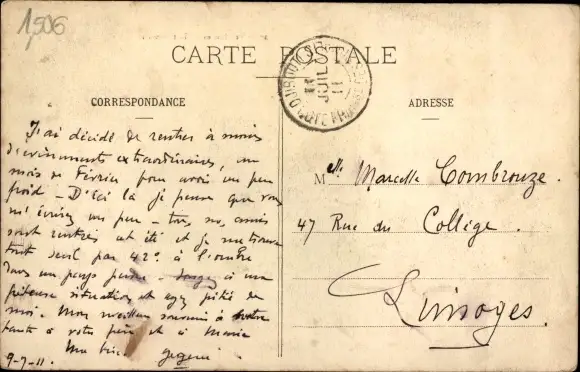 1506
CARTE POSTALE
CORRESPONDANCE
ADRESSE
JUIL
11
J'ai décidé de rentrer à moins
d'événements extraordinaires, au
mois de Février pour avoir un peu
froid - D'ici là je pense que vous
m'écrirez un peu - tous nos amis
sont rentrés cet été et je me trouve
tout seul par 42° à l'ombre
dans un pays perdu - Songez à ma
piteuse situation et ayez pitié de
moi. Mon meilleur souvenir à votre
tante à votre père et à Marie
9-7-11.
Melle Marcelle Combrouze.
47 Rue du Collège.
Limoges.